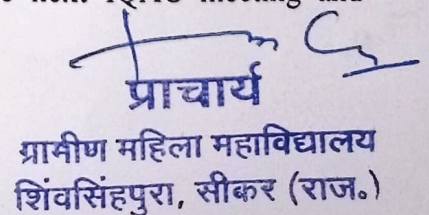 प्राचार्य
ग्रामीण महिला महाविद्यालय
शिंवसिंहपुरा, सीकर (राज॰)